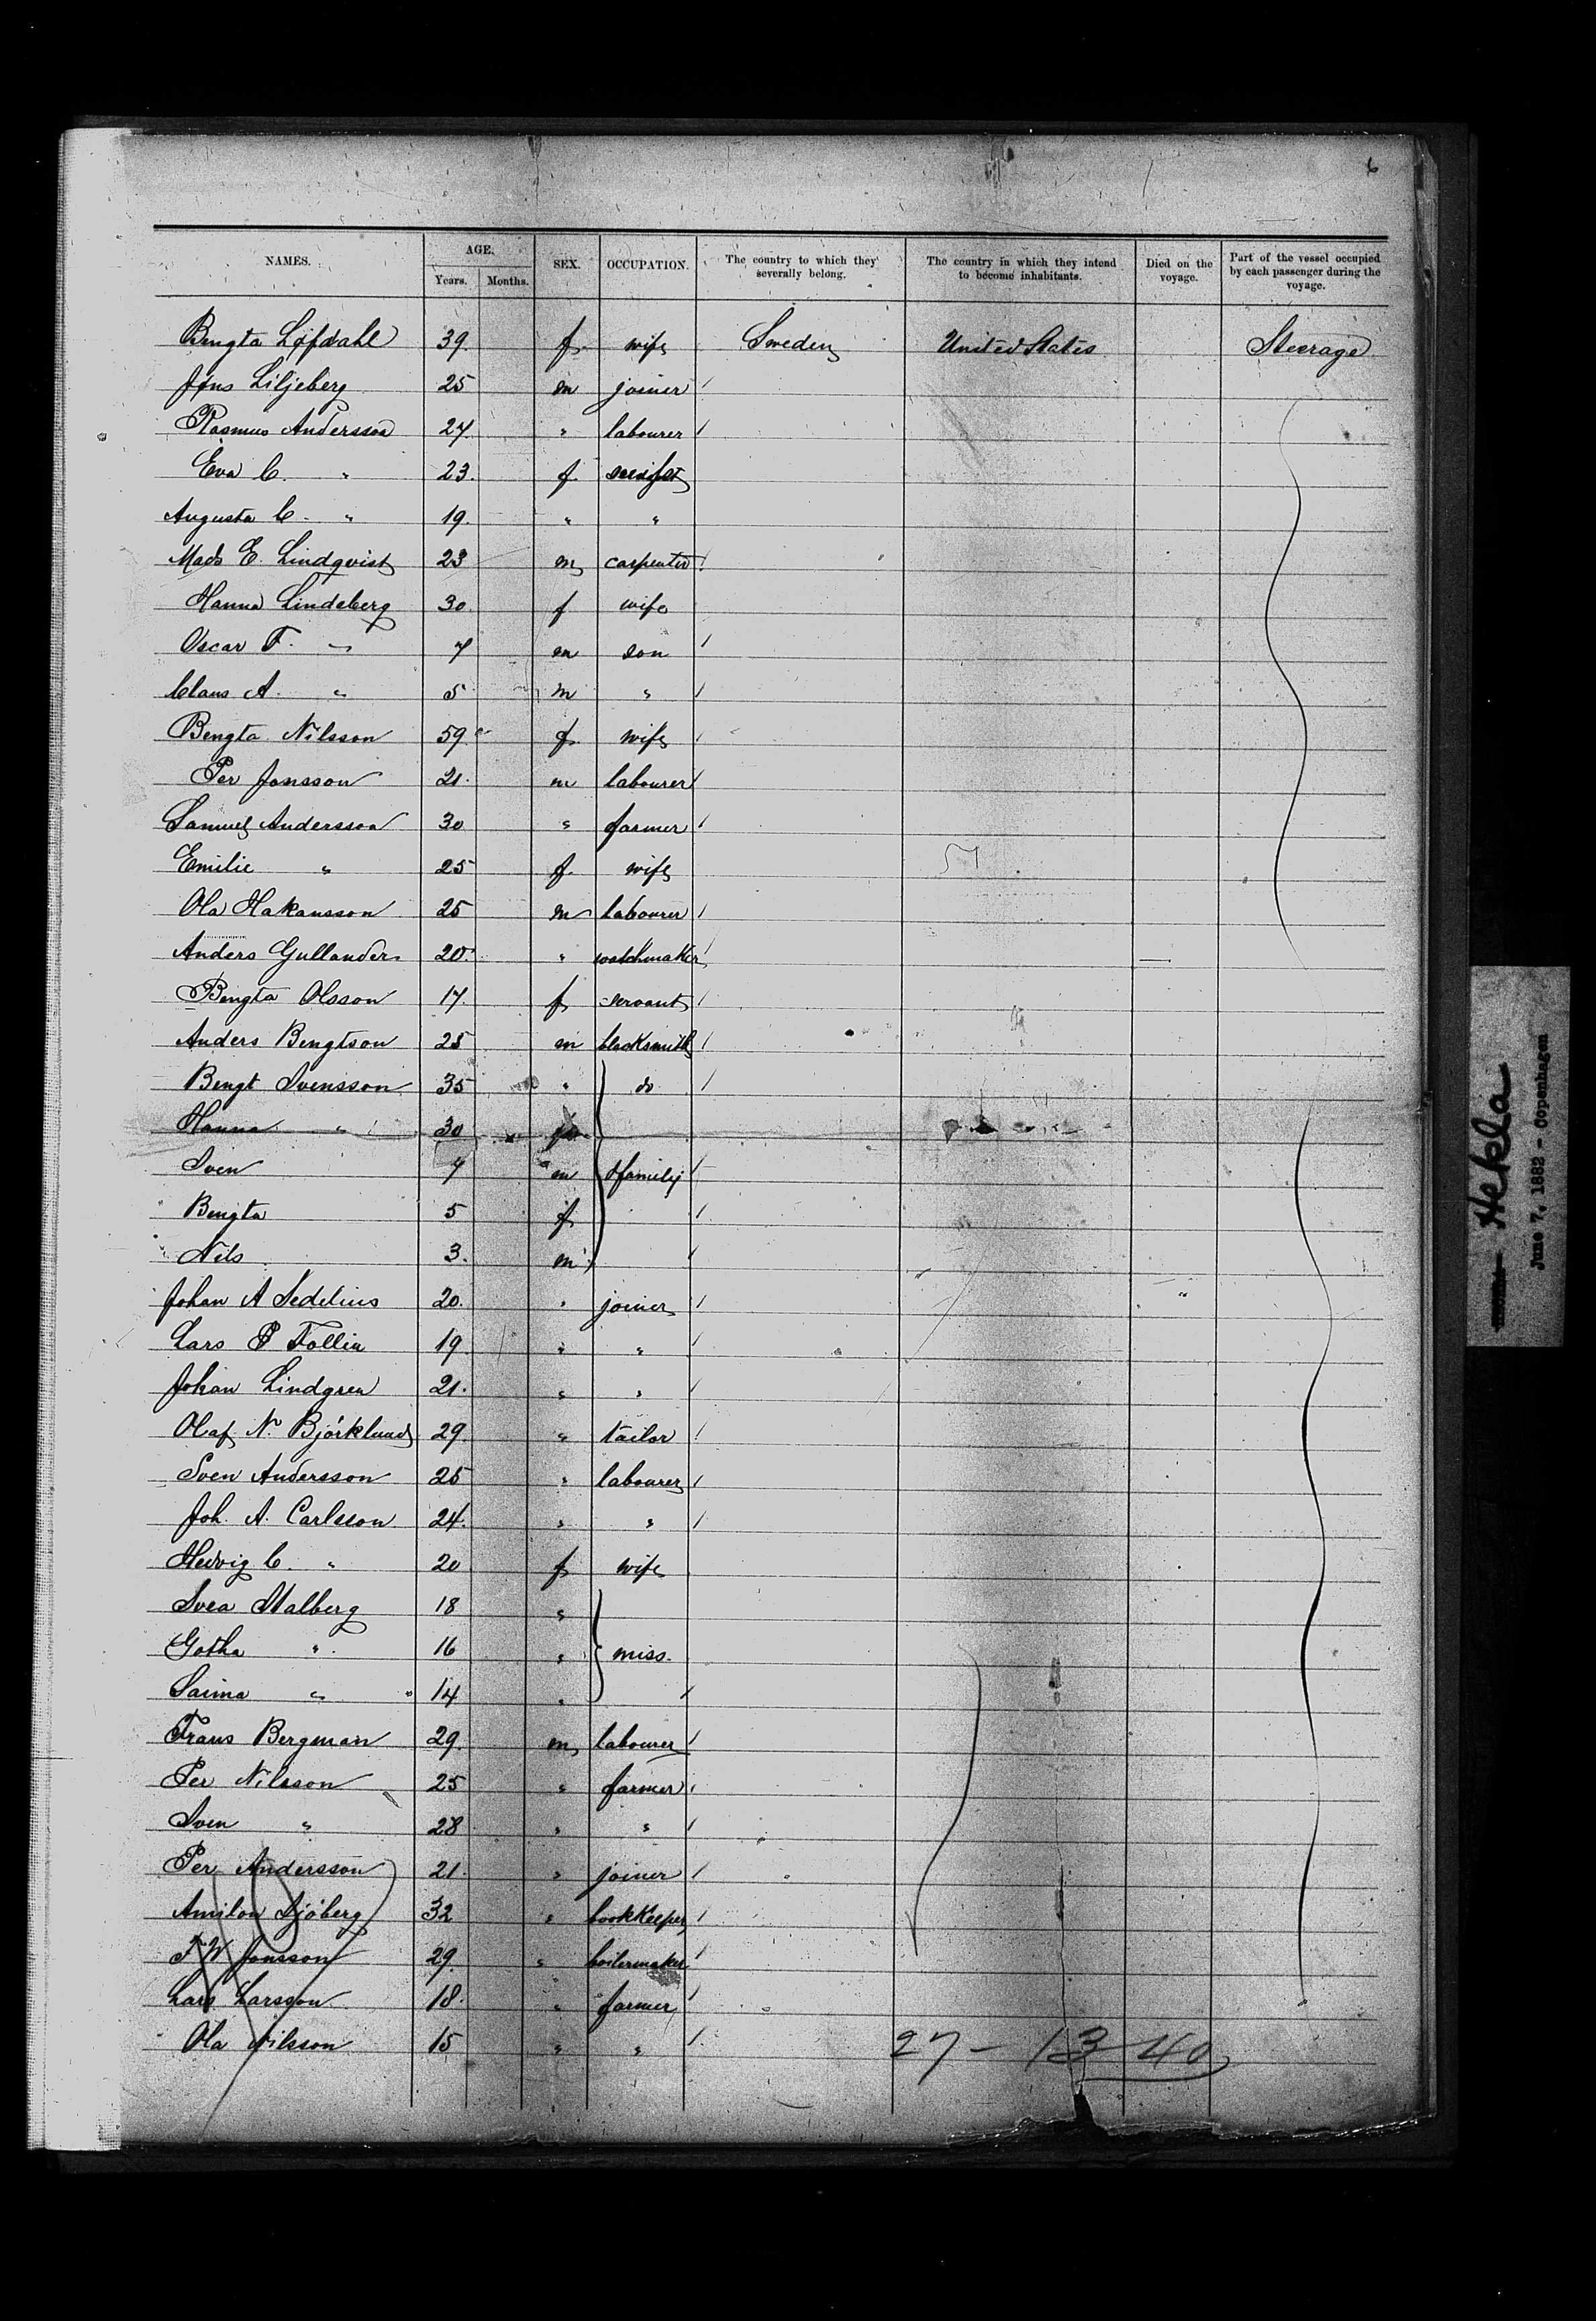 6
NAMES. AGE. SEX. OCCUPATION. The country to which they severally belong. The country in which they intend to become inhabitants. Died on the voyage. Part of the vessel occupied by each passenger during the voyage.
Years. Months.
Bengta Løfdahl 39. f. wife Sweden United States Steerage
Jøns Liljeberg 25 m joiner /
Rasmus Andersson 24. " labourer /
Eva C. " 23. f
Augusta C. " 19. " "
Mads E. Lindqvist 23 m carpenter /
Hanna Lindeberg 30 f wife
Oscar F. " 7 m son /
Claus A. " 5 m " /
Bengta Nilsson 59 f. wife /
Per Jonsson 21. m labourer /
Samuel Andersson 30 " farmer /
Emilie " 25 f. wife
Ola Hakansson 25 m labourer /
Anders Gullander 20. " watchmaker /
Bengta Olsson 17. f servant /
Anders Bengtson 25 m blacksmith /
Bengt Svensson 35 " do /
Hanna " 30
Sven 7 m family /
Bengta 5 f /
Nils 3. m /
Johan A Sedelius 20. " joiner /
Lars P Follin 19 " " /
Johan Lindgren 21. " " /
Olaf N. Bjørklund 29. " tailor /
Sven Andersson 25 " labourer /
Joh. A. Carlsson 24. " " /
Hedvig C. " 20 f wife
Svea Stalberg 18 "
Gotha " 16 " miss.
Saima " 14 " /
Frans Bergman 29. m labourer /
Per Nilsson 25 " farmer /
Sven " 28 " " /
Per Andersson 21. " joiner /
Amilon Sjöberg 32 " bookkeeper /
F W Jonsson 29. " boilermaker /
Lars Larsson 18. " farmer /
Ola Nilsson 15 " " /
27 - 13 40
Hekla
June 7, 1882 - Copenhagen